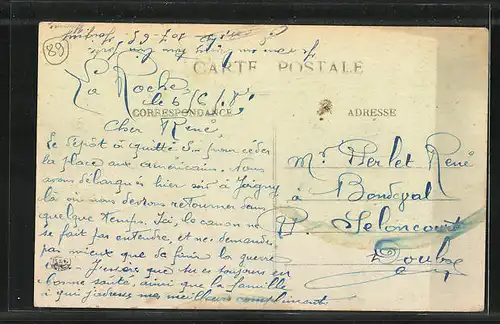 89
CARTE POSTALE
CORRESPONDANCE
ADRESSE
La Roche
le 6/6/18
Cher René,
Le dépôt a quitté pour céder
la place aux américains. Nous
avons débarqués hier soir à Joigny
là où nous devons retourner dans
quelque temps. Ici, le canon ne
se fait pas entendre, et ne demandes
pas mieux que de finir la guerre
J'espère que tu es toujours en
bonne santé, ainsi que ta famille
à qui j'adresse mes meilleurs compliments.
Mr Perlet René
à Bondeval
Seloncourt
Doubs